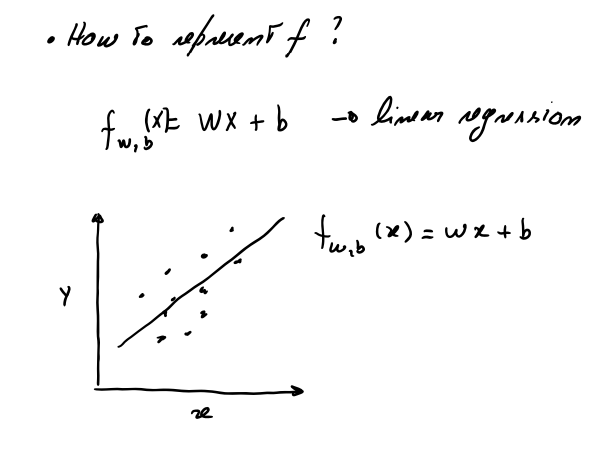 • How to represent f ?
f_{w,b}(x) = wx + b → linear regression
f_{w,b}(x) = wx + b
y
x